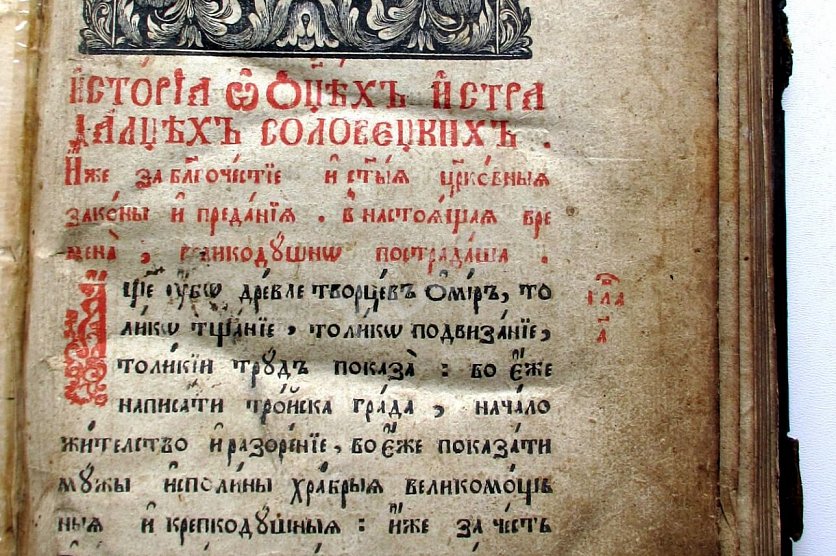 И҆сто́рїа ѽ Ѻ҆ц҃ѣхъ и҆ стра
далцѣхъ соловецкихъ .
И҆же за бл҃гоче́стїе и҆ ст҃ы́ѧ цр҃ко́вныѧ
зако́ны и҆ преда́нїѧ . в̾ настоѧ́щаѧ вре
мена̀ , великодꙋ́шнѡ пострада́ша .
А҆ще ᲂу҆́бѡ дре́вле творце́въ О҆ми́ръ , то
ли́кѡ тща́нїе , толи́кѡ подвиза́нїе ,
толи́кїи трꙋ́дъ показа̀ : во є҆́же
написа́ти тро́йска гра́да , нача́ло
жи́телство и҆ разоре́нїе , во є҆́же показа́ти
мꙋ́жы и҆споли́ны хра́брыѧ великомо́щ
ныѧ и҆ крепкодꙋ́шныѧ : и҆́же за че́сть